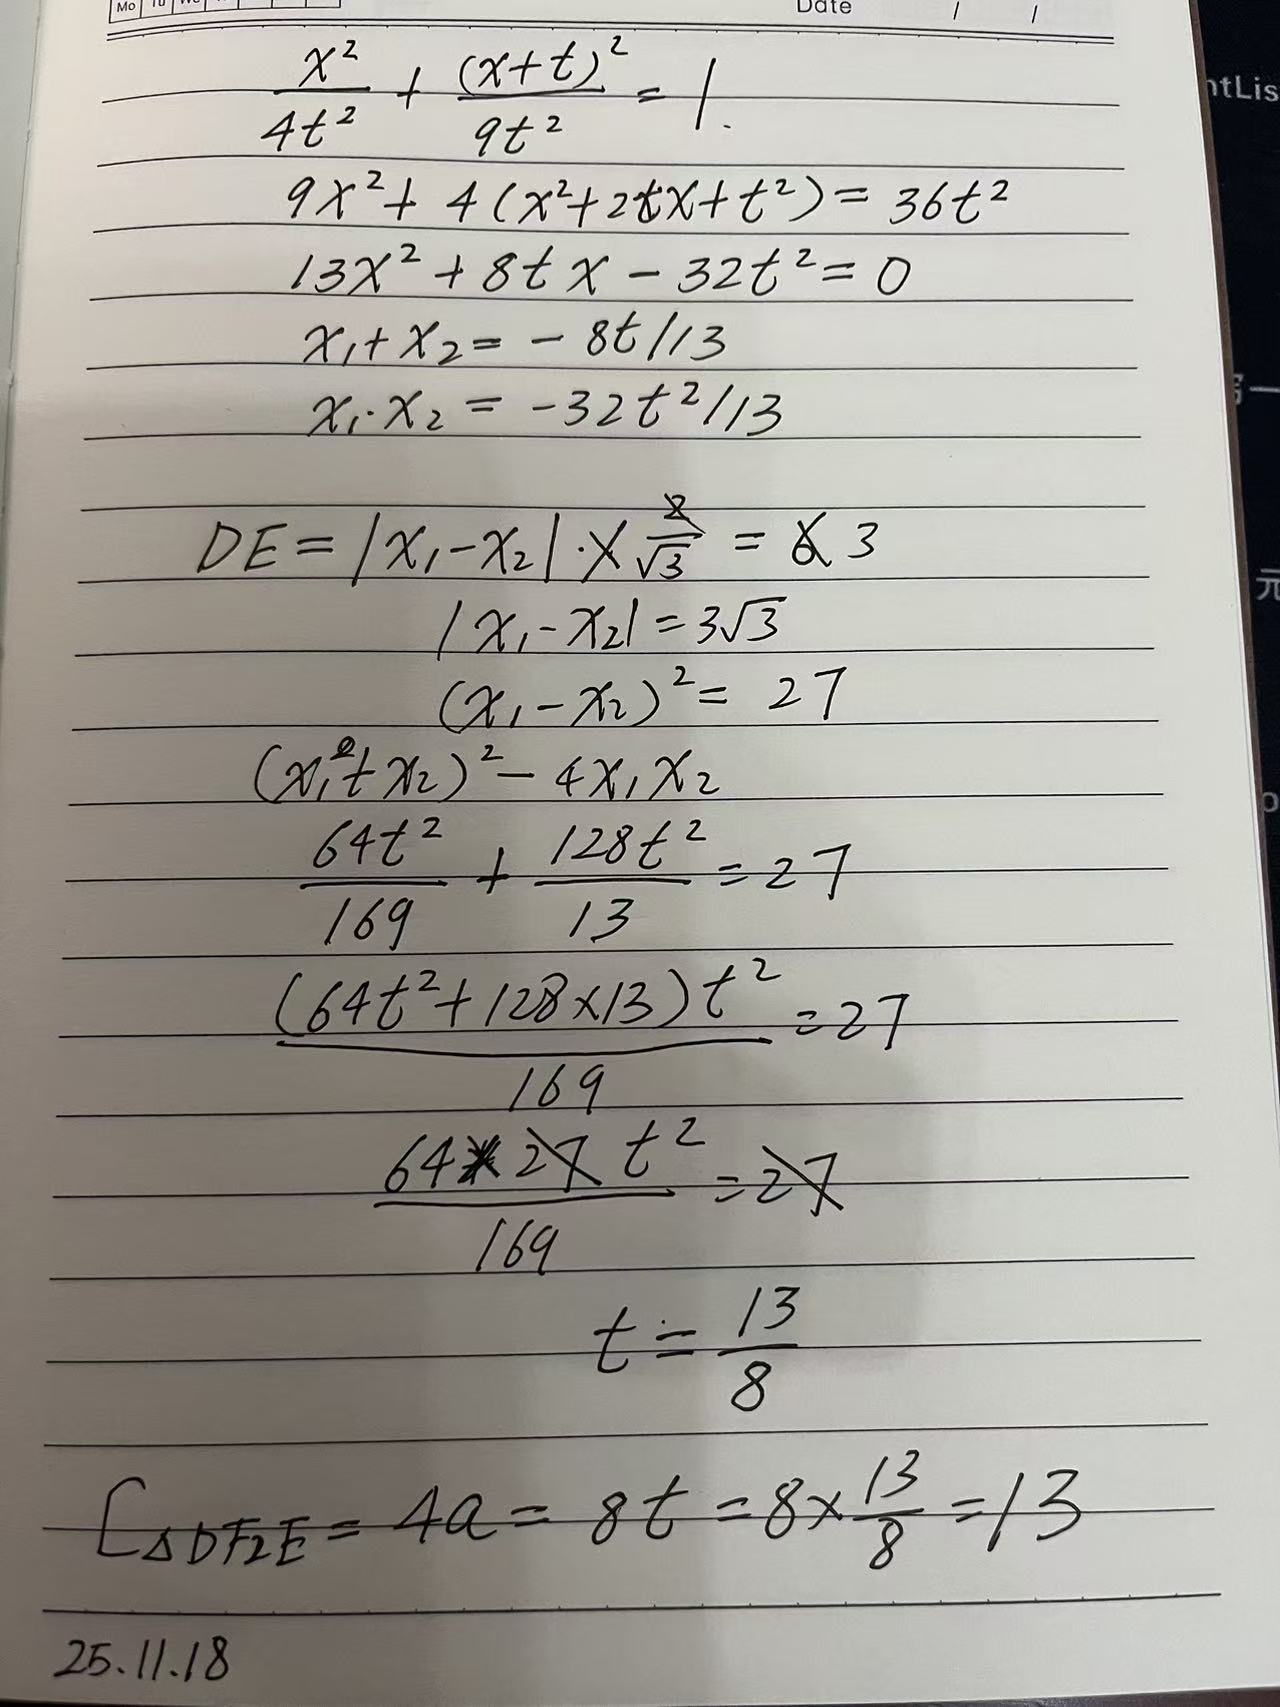 Mo Tu We
Date / /
x²/4t² + (x+t)²/9t² = 1.
9x² + 4(x²+2tx+t²) = 36t²
13x² + 8tx - 32t² = 0
x₁+x₂ = - 8t/13
x₁·x₂ = -32t²/13
DE = |x₁-x₂|·2/√3 = 3
|x₁-x₂| = 3√3
(x₁-x₂)² = 27
(x₁+x₂)² - 4x₁x₂
64t²/169 + 128t²/13 = 27
(64t²+128×13)t²/169 = 27
64×27t²/169 = 27
t = 13/8
C△DF₂E = 4a = 8t = 8×13/8 = 13
25.11.18
ntLis
元